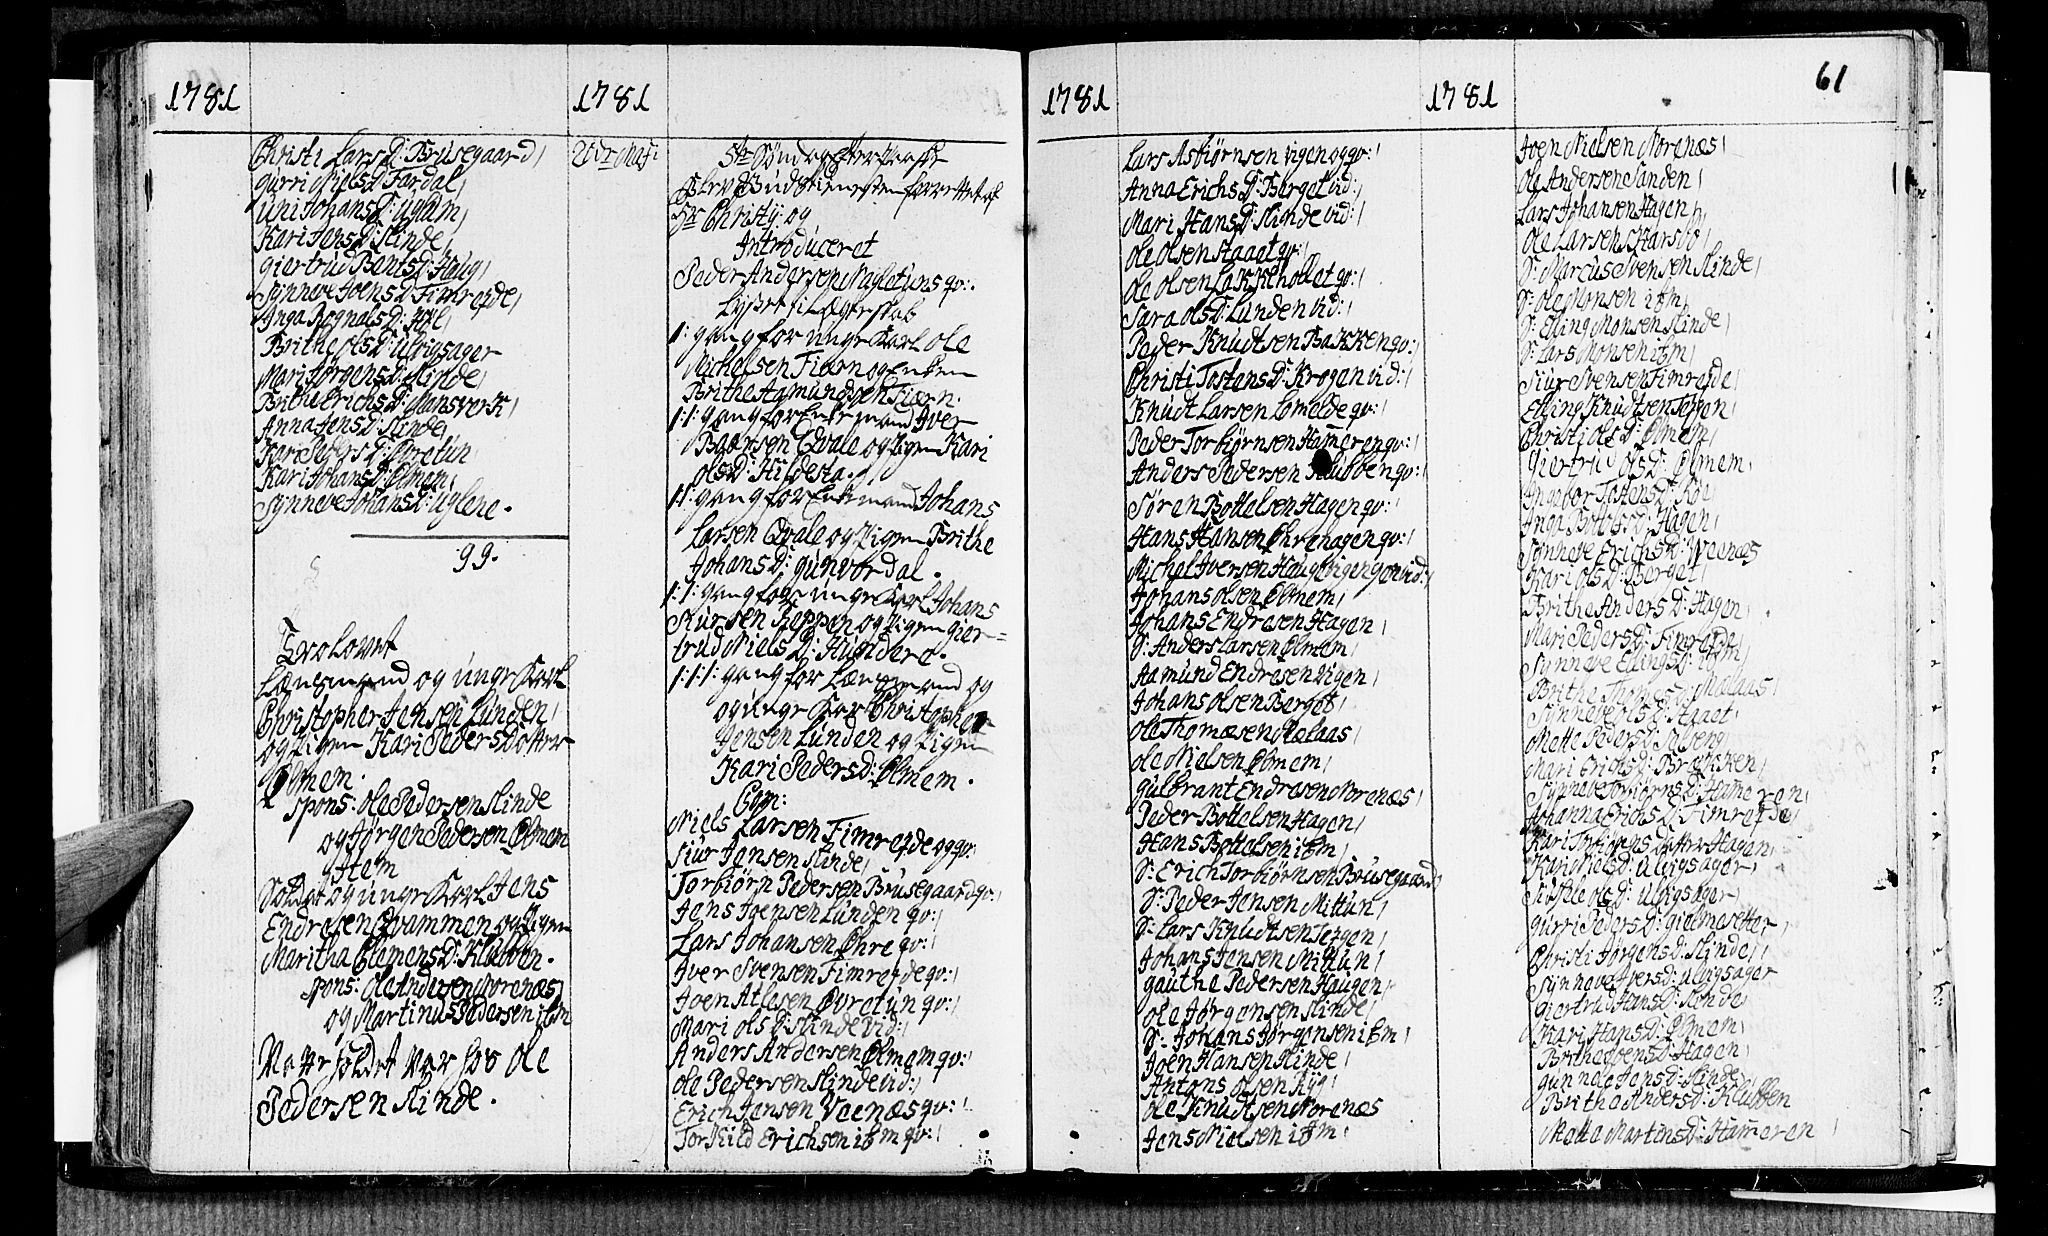 1781
Christi LarsD: Brusegaard/
gurri NielsD: Fardal/
Uni JohansD: Uglum/
Kari JensD: Slinde/
giertrud BentsD: Haug/
Synneve JoensD: Fimrejde/
Inga RognalsD:
Brithe OlsD: Ulvigsager
Mari JørgensD: Slinde/
Brithe ErichsD: Mansverk/
Anna JensD: Slinde/
Kari PedersD: Øvretun/
Kari JohansD: Ølmem/
Synneve JohansD: Uglene.
99.
Trolovet
Lænsmand og ungekarl
Christopher Jensen Lunden/
og Pigen Kari Peders Dotter
Ølmem.
spons: Ole Pedersen Slinde
og Jørgen Pedersen Ølmem
Item
Soldat og unge Karl Jens
Endresen Qvammen og Pigen
Maritha ClemensD: Klubben.
spons: Ole Andersen Norenæs/
og Martinus Pedersen ibm
var for Ole
Pedersen Slinde.
1781
20de Maji
5te Søndag efter Paaske
blev Gudstienesten forrettet af
Hr Christy: og
Introduceret
Peder Andersen Nagletuns qv:
Lyst til Ægteskab
/: gang for unge Karl Ole
Michelsen Fiærn og Enken
Brithe Aamundsen Fiærn.
/:/: gang for Enkemand Iver
Baarsen Qvale og Pigen Kari
OlsD: Hildesta.
/:/: gang for Enkemand Johans
Larsen Qvale og Pigen Brithe
JohansD: gunvordal.
/:/: gang for unge Karl Johans
Siursen Reppen og Pigen gier=
trud NielsD: Hundere.
/:/:/: gang for Lænsmand og
og unge Karl Christopher
Jensen Lunden og Pigen
Kari PedersD: Ølmem.
Com:
Niels Larsen Fimrejde og qv:
Siur Jensen Slinde/
Torbiørn Pedersen Brusegaard qv:/
Jens Joensen Lunden qv:/
Lars Johansen Øhre qv:/
Iver Svensen Fimrejde qv:/
Joen Atlesen Øvretun qv:/
Mari OlsD: Slinde vid:/
Anders Andersen Ølmem qv:/
Ole Pedersen Slinde vid:/
Erich Jensen Veenæs qv:/
Torkild Erichsen ibm qv:/
1781
Lars Asbiørnsen Vigen og qv:/
Anna ErichsD: Berget vid:/
Mari HansD: Slinde vid:/
Ole Olsen Staaet qv:/
Ole Olsen Lekkehollet qv:/
Sara OlsD: Lunden vid:/
Peder Knudtsen Bakken qv:/
Christi TostensD: Krogen vid:/
Knudt Larsen Lomelde qv:/
Peder Torbiørnsen Hameren qv:/
Anders Pedersen Klubben qv:/
Søren Bottelsen Hagen qv:/
Hans Hansen Øhrehagen qv:/
Michel Iversen Haugvigen qv:/
Johans Olsen Ølmem/
Johans Endresen Hagen/
S: Anders Larsen Ølmem/
Aamund Endresen Vigen/
Johans Olsen Berget/
Ole Thomæsen Mælaas/
Ole Nielsen Ølmem/
gulbrant Endresen Norenæs/
Peder Bottelsen Hagen/
Hans Bottelsen ibm/
S: Erich Torbiørnsen Brusegaard/
S: Peder Jensen Mittun/
S: Lars Knudtsen Terpen/
Johans Jensen Mittun/
gauthe Pedersen Haugen/
Ole Jørgensen Slinde/
S: Johans Jørgensen ibm/
Joen Hansen Slinde/
Antons Olsen Ryg/
Ole Knudtsen Norenæs
Jens Nielsen ibm/
1781
61
Joen Nielsen Norenæs/
Ole Andersen Sanden/
Lars Johansen Hagen/
Ole Larsen Skarsbø/
S: Marcus Svensen Slinde/
S: Ole Monsen ibm/
S: Elling Monsen Slinde/
S: Lars Monsen ibm/
Siur Svensen Fimrejde/
Elling Knudtsen Terpen/
Christi OlsD: Ølmem/
Giertrud OlsD: Ølmem/
Ingebor TostensD:
Inga BottelsD: Hagen/
Synneve ErichsD: Veenæs
Kari OlsD: Berget/
Brithe AndersD: Hagen/
Mari PedersD: Fimrejde/
Synneve EllingsD: ibm/
Brithe ThomæsD: Mælaas/
Synneve OlsD: Staaet/
Mette PedersD:
Mari ErichsD: Brækken/
Synneve TorbiørnsD: Hameren/
Johanna ErichsD: Fimrejde/
Kari Torbiørns Dotter Hagen/
Kari NielsD: Ulvigsager/
OlsD: Ulvigsager
gurri PedersD: gielmesetter
Christi JørgensD: Slinde/
Synneve IversD: Ulvigsager
giertrud HansD: Slinde
Kari HansD: Ølmem/
Brithe JoensD: Hagen/
gunnele JensD: Slinde/
Brithe AndersD: Klubben
Mette MartensD: Hameren/